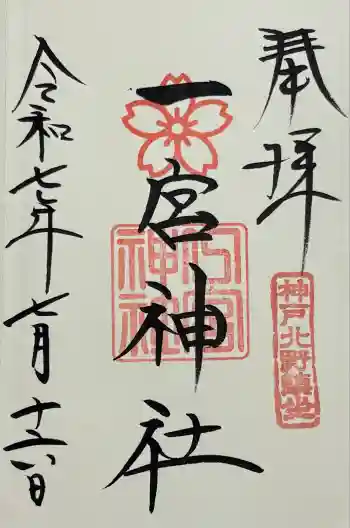 奉拝
神戸北野鎮坐
一宮神社
一宮神社
令和七年七月十六日